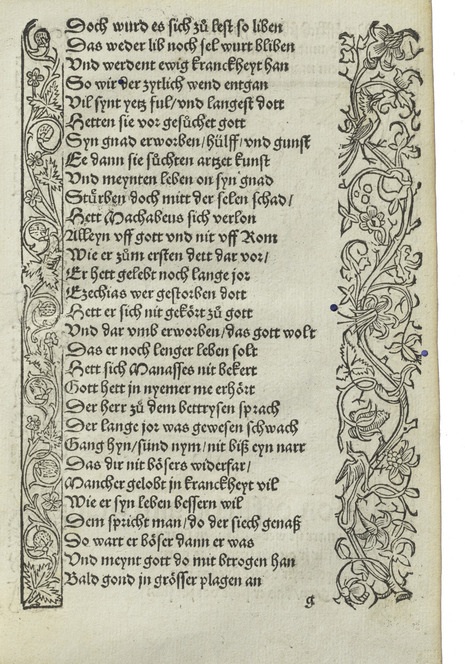 Doch wurd es sich zů lest so liben
Das weder lib noch sel wurt bliben
Vnd werdent ewig kranckheyt han
So wir der zytlich wend entgan
Vil synt yetz ful/vnd langest dott
Hetten sie vor gesůchet gott
Syn gnad erworben/hülff/vnd gunst
Ee dann sie sůchten artzet kunst
Vnd meynten leben on syn gnad
Stürben doch mitt der selen schad/
Hett Machabeus sich verlon
Alleyn vff gott vnd nit vff Rom
Wie er zům ersten dett dar vor/
Er hett gelebt noch lange jor
Ezechias wer gestorben dott
Hett er sich nit gekört zů gott
Vnd dar vmb erworben/das gott wolt
Das er noch lenger leben solt
Hett sich Manasses nit bekert
Gott hett jn nyemer me erhört
Der herr zů dem bettrysen sprach
Der lange jor was gewesen schwach
Gang hyn/sünd nym/nit biß eyn narr
Das dir nit bösers widerfar/
Mancher gelobt jn kranckheyt vil
Wie er syn leben bessern wil
Dem spricht man/do der siech genaß
Do wart er böser dann er was
Vnd meynt gott do mit btrogen han
Bald gond jn grösser plagen an
g